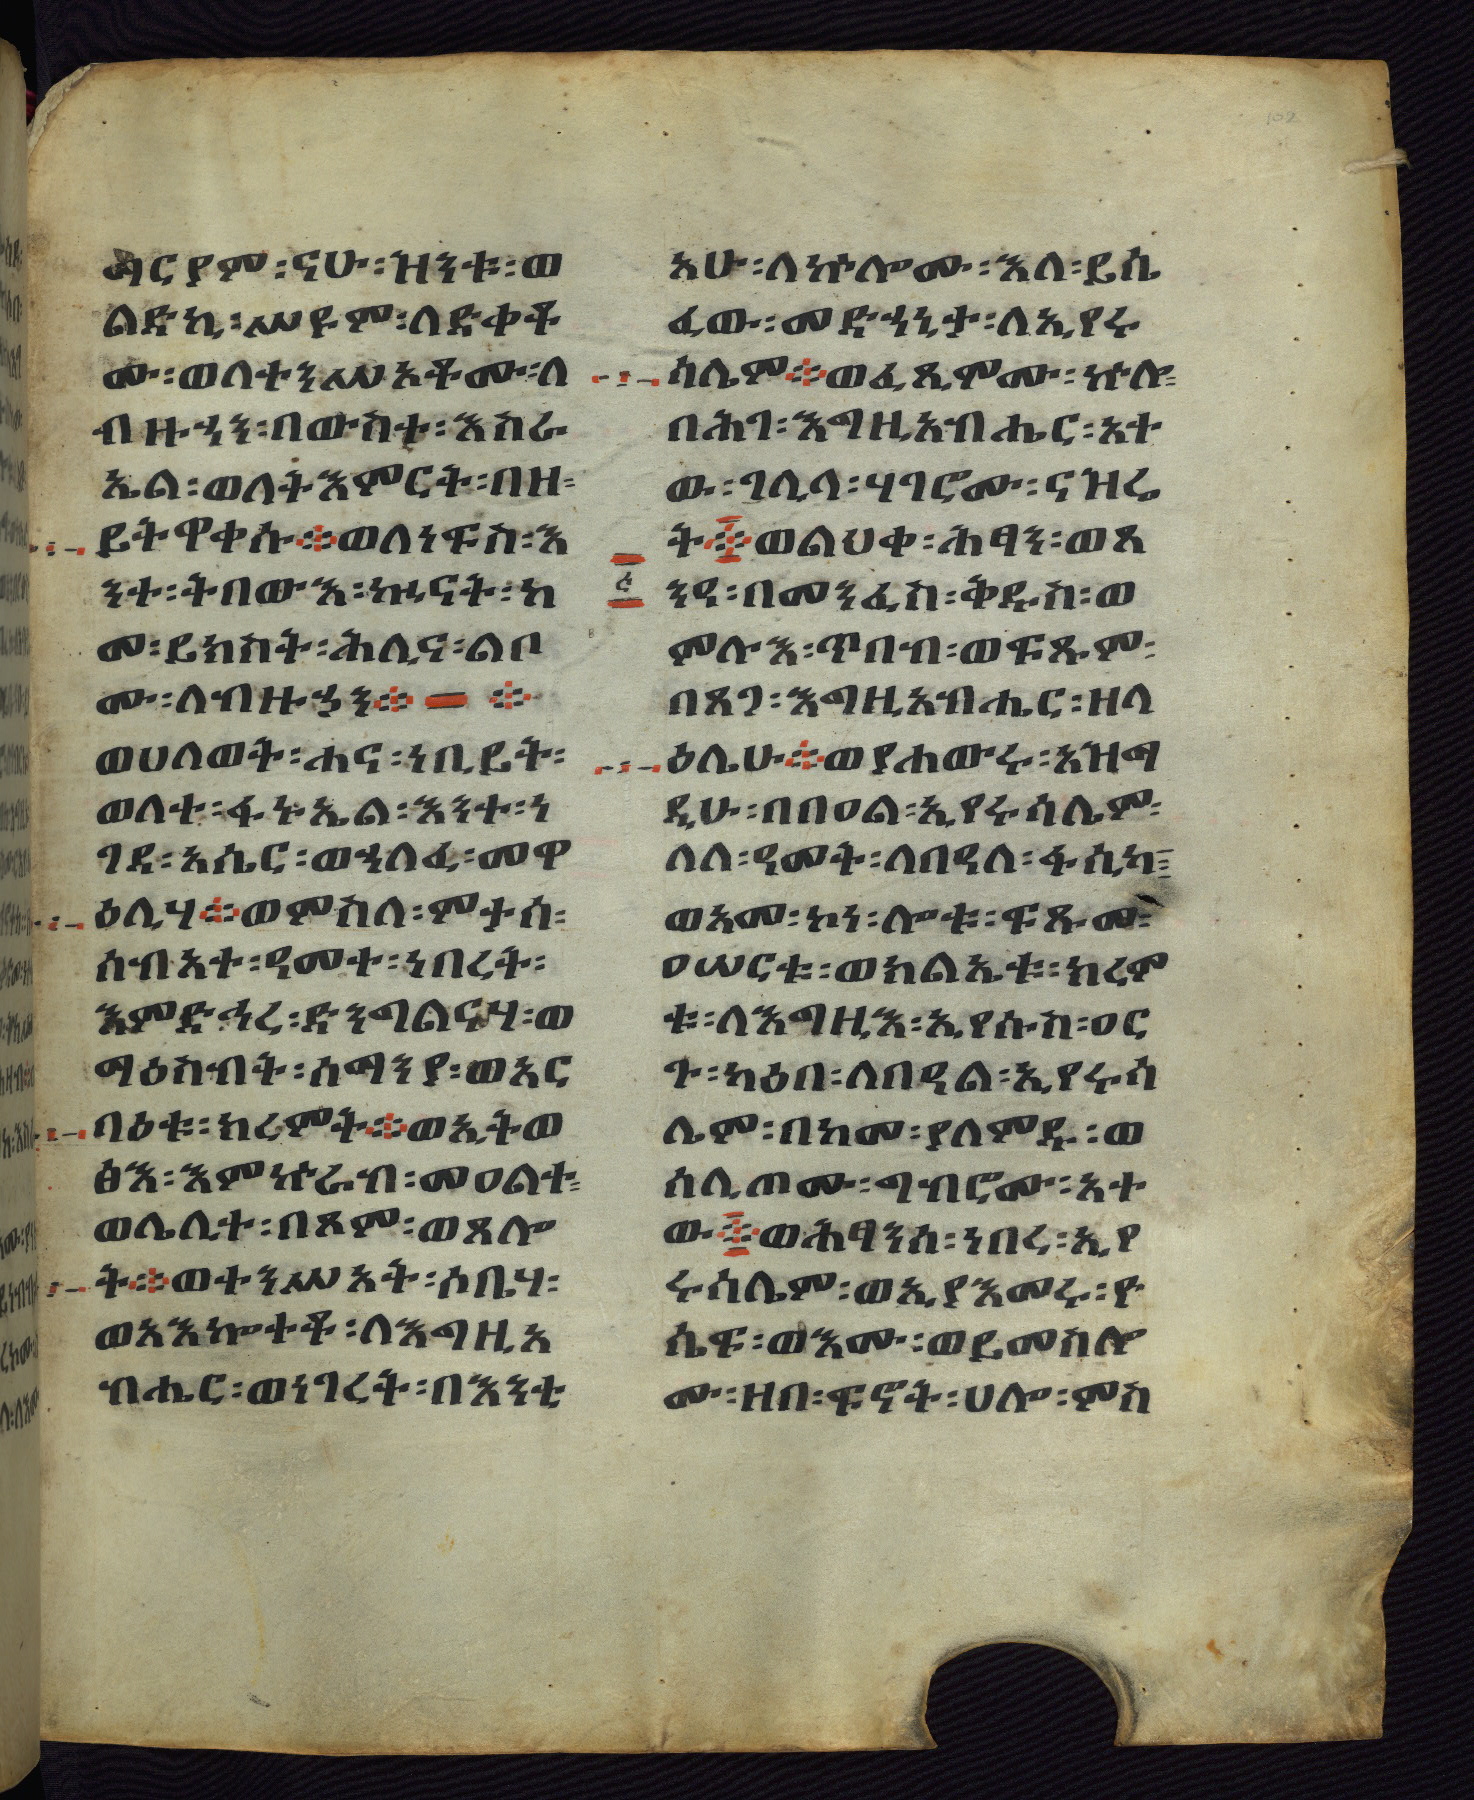 ማርያም፡ናሁ፡ዝንቱ፡ወ
ልድኪ፡ሥዩም፡ለድቀቶ
ሙ፡ወለተንሥአቶሙ፡ለ
ብዙኃን፡በውስተ፡እስራ
ኤል፡ወለትእምርት፡በዘ፡
ይትዋቀሱ፨ወለነፍስ፡እ
ንተ፡ትበውእ፡ኵናት፡ከ
መ፡ይክስት፡ሕሊና፡ልቦ
ሙ፡ለብዙኃን፨ ፨
ወሀለወት፡ሐና፡ነቢይት፡
ወለተ፡ፋኑኤል፡እንተ፡ነ
ገደ፡አሴር፡ወኃለፈ፡መዋ
ዕሊሃ፨ወምስለ፡ምታስ፡
ሰብአተ፡ዓመተ፡ነበረት፡
እምድኅረ፡ድንግልናሃ፡ወ
ማዕስብት፡ሰማንያ፡ወአር
ባዕቱ፡ክረምት፨ወኢትወ
ፅእ፡እምኵራብ፡መዐልተ፡
ወሌሊተ፡በጾም፡ወጸሎ
ት፨ወተንሥአት፡ሶቤሃ፡
ወአእኰተቶ፡ለእግዚአ
ብሔር፡ወነገረት፡በእንቲ
አሁ፡ለኵሎሙ፡እለ፡ይሴ
ፈው፡መድኃኒታ፡ለኢየሩ
ሳሌም፨ወፈጺሞሙ፡ኵሎ፡
በሕገ፡እግዚአብሔር፡አተ
ው፡ገሊላ፡ሃገሮሙ፡ናዝሬ
ት፨ወልህቀ፡ሕፃን፡ወጸ
፮
ንዓ፡በመንፈስ፡ቅዱስ፡ወ
ምሉእ፡ጥበብ፡ወፍጹም፡
በጸጋ፡እግዚአብሔር፡ዘላ
ዕሌሁ፨ወያሐውሩ፡አዝማ
ዲሁ፡በበዐል፡ኢየሩሳሌም፡
ለለ፡ዓመት፡ለበዓለ፡ፋሲካ፡
ወአመ፡ኮነ፡ሎቱ፡ፍጹመ፡
ዐሠርቱ፡ወክልኤቱ፡ክረም
ቱ፡ለእግዚእ፡ኢየሱስ፡ዐር
ጉ፡ካዕበ፡ለበዓል፡ኢየሩሳ
ሌም፡በከመ፡ያለምዱ፡ወ
ሰሊጦሙ፡ግብሮሙ፡አተ
ው፨ወሕፃንሰ፡ነበረ፡ኢየ
ሩሳሌም፡ወኢያእመሩ፡ዮ
ሴፍ፡ወእሙ፡ወይመስሎ
ሙ፡ዘበ፡ፍኖት፡ሀሎ፡ምስ